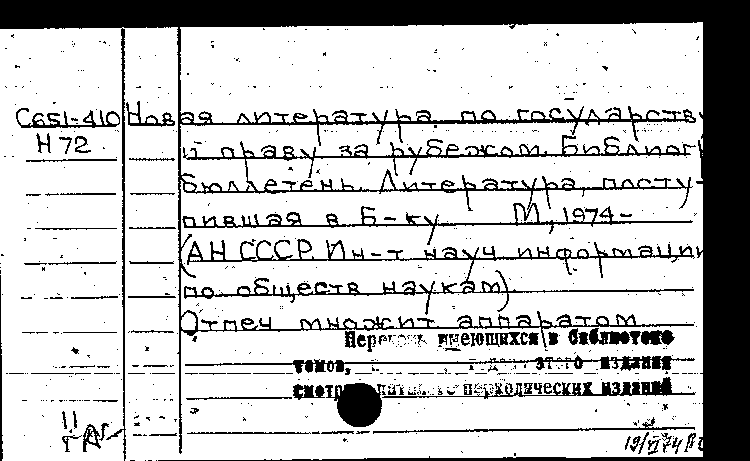 С651-410 Новая литература по государству
Н 72 и праву за рубежом. Библиогр
бюллетень. Литература, посту-
пившая в Б-ку М., 1974-
(АН СССР. Ин-т науч информации
по обществ наукам).
Отпеч множит аппаратом
имеющихся в библиотеке
томов, этого издания
периодических изданий
19/VI 74